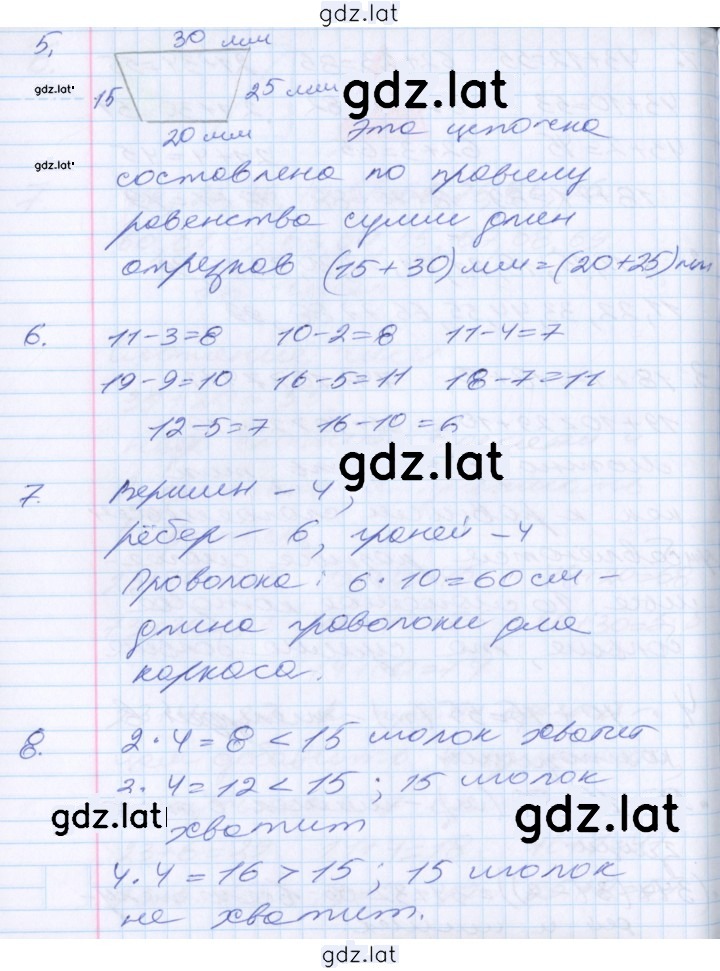 gdz.lat
5. 30 мм
gdz.lat
15 25 мм gdz.lat
20 мм Эта цепочка
gdz.lat
составлена по правилу
равенства сумм длин
отрезков (15+30)мм=(20+25)мм
6. 11-3=8 10-2=8 11-4=7
19-9=10 16-5=11 18-7=11
12-5=7 16-10=6
gdz.lat
7. Вершин - 4,
рёбер - 6, граней - 4
Проволока: 6·10=60 см -
длина проволоки для
каркаса.
8. 2·4=8<15 иголок хватит
2·4=12<15; 15 иголок
gdz.lat gdz.lat
хватит
4·4=16>15; 15 иголок
не хватит.
gdz.lat